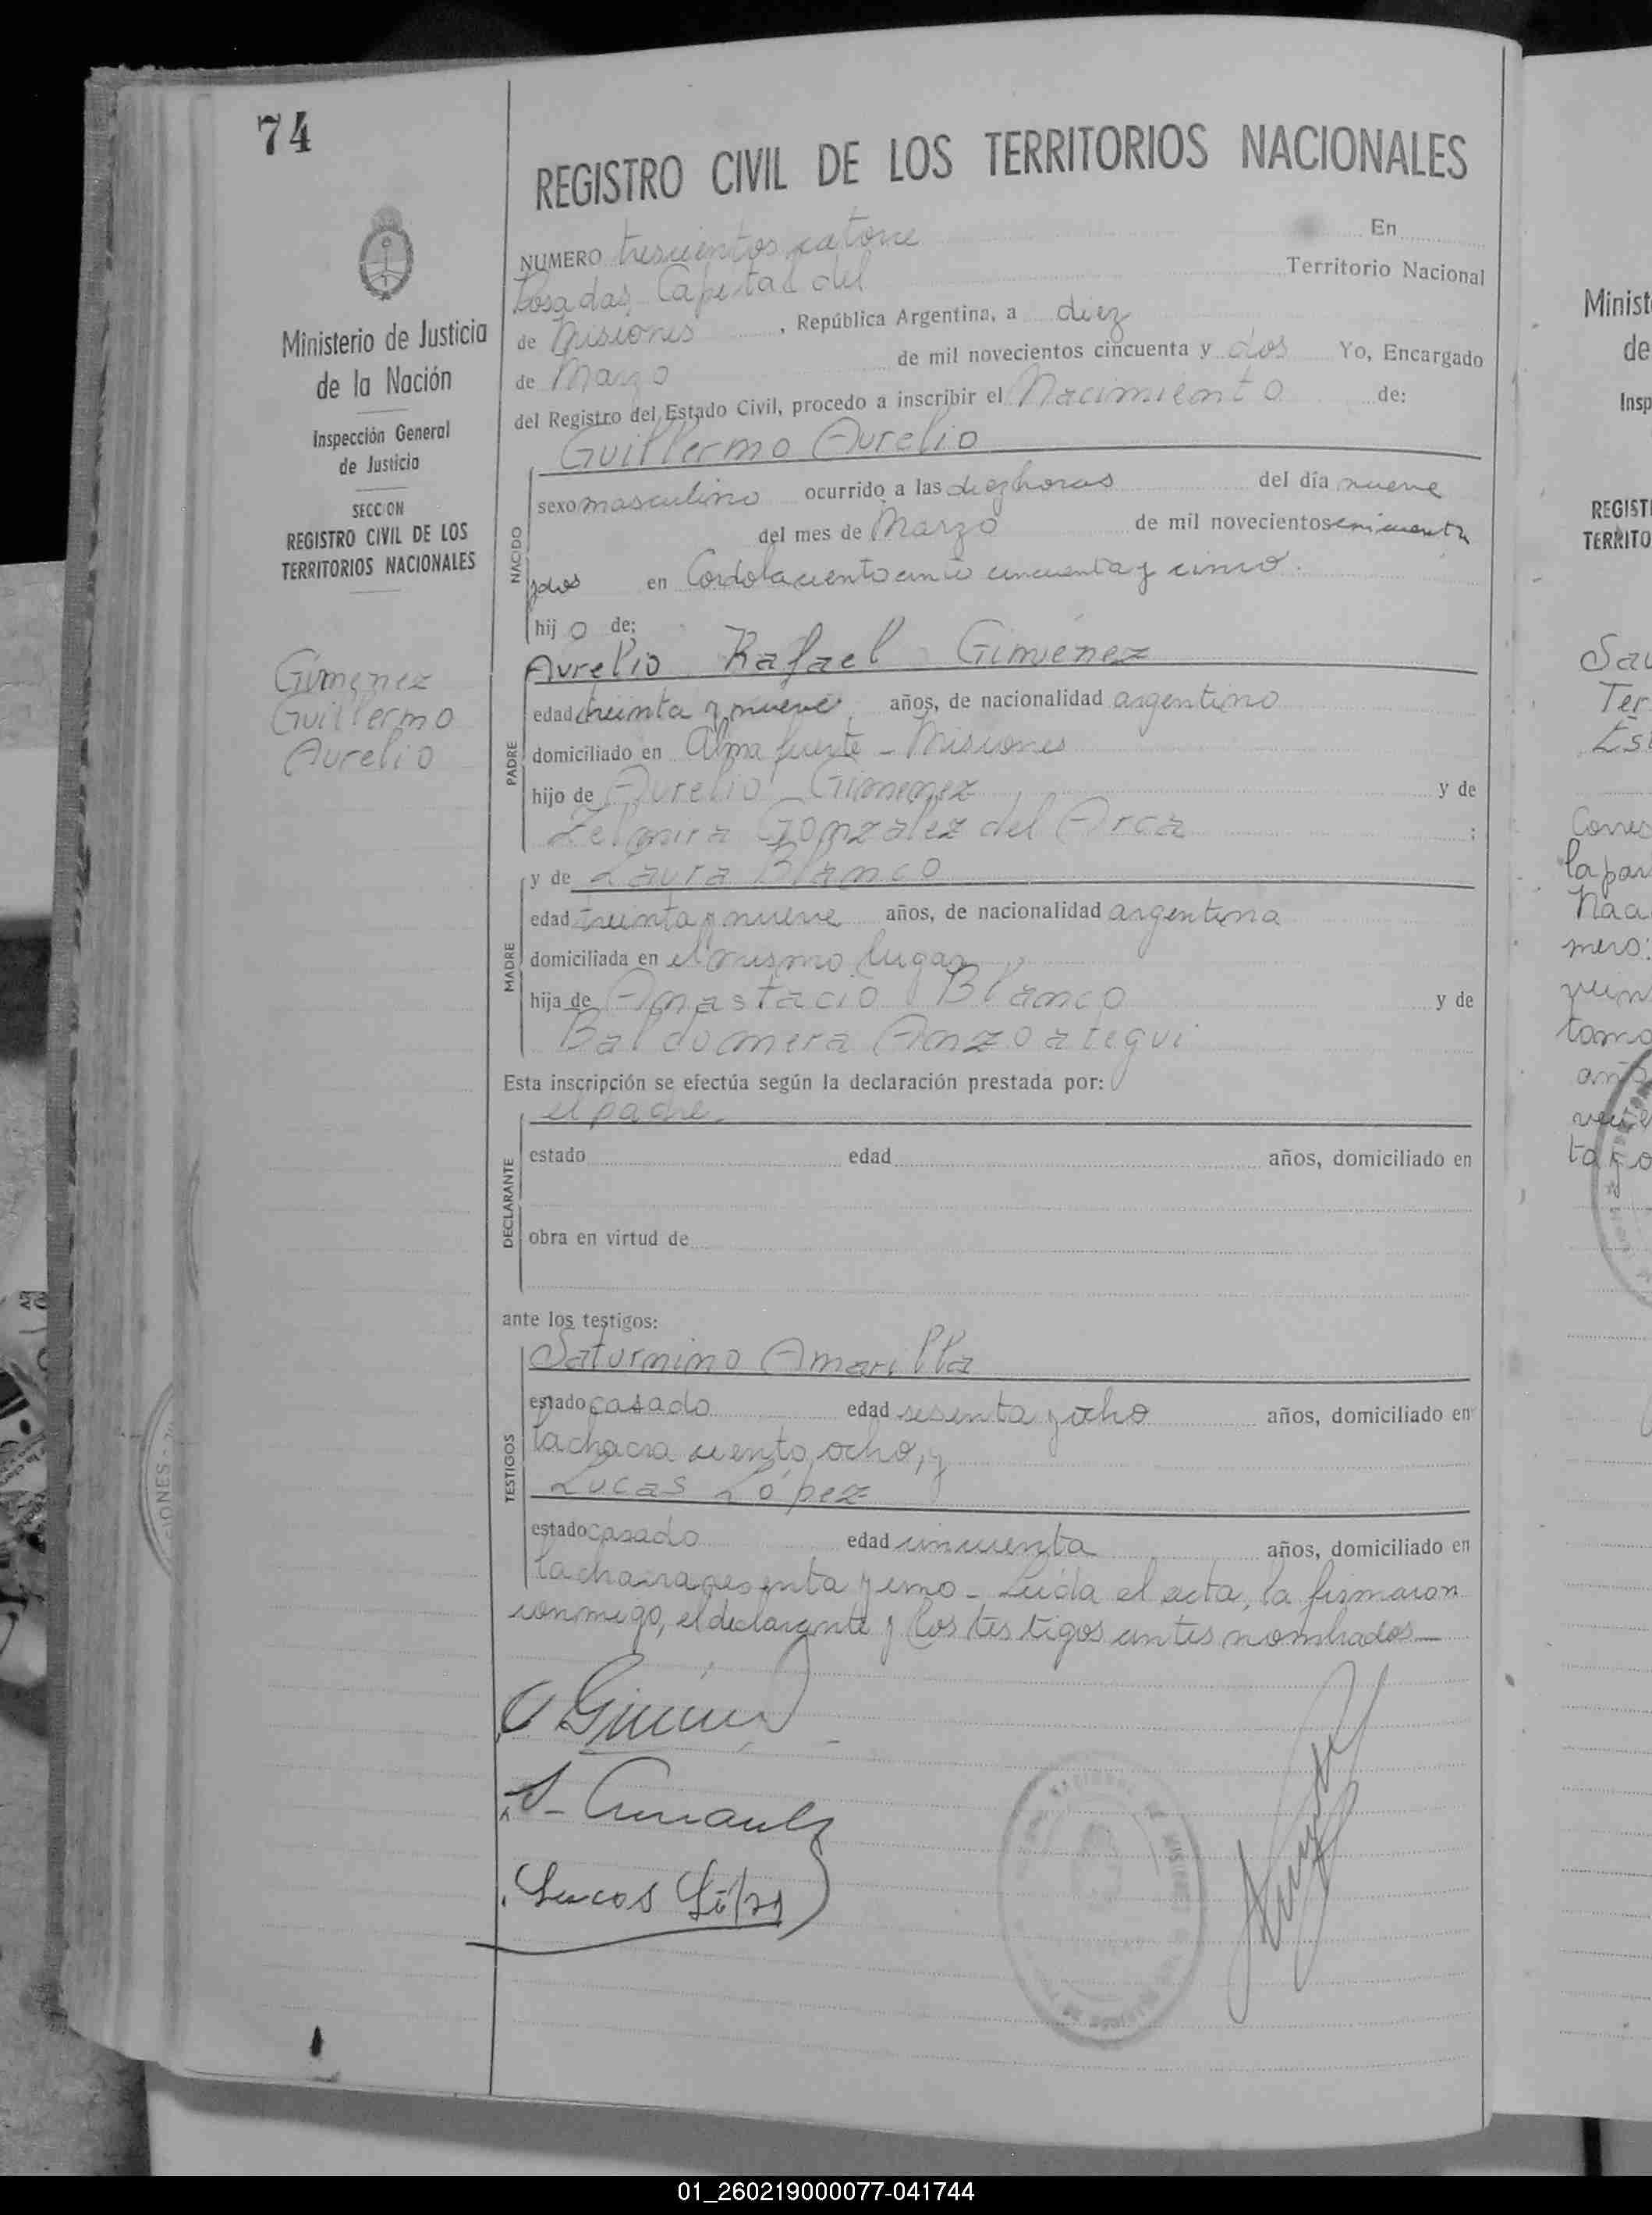 74
REGISTRO CIVIL DE LOS TERRITORIOS NACIONALES
Ministerio de Justicia
de la Nación
Inspección General
de Justicia
SECCION
REGISTRO CIVIL DE LOS
TERRITORIOS NACIONALES
Gimenez
Guillermo
Aurelio
NUMERO trescientos catorce En
Posadas, Capital del Territorio Nacional
de Misiones, República Argentina, a diez
de Marzo de mil novecientos cincuenta y dos Yo, Encargado
del Registro del Estado Civil, procedo a inscribir el Nacimiento de:
Guillermo Aurelio
NACIDO
sexo masculino ocurrido a las diez horas del día nueve
del mes de Marzo de mil novecientos cincuenta
y dos en Cordoba ciento cincuenta y cinco.
hijo de:
Aurelio Rafael Gimenez
PADRE
edad treinta y nueve años, de nacionalidad argentino
domiciliado en Alma fuerte - Misiones
hijo de Aurelio Gimenez y de
Zelmira Gonzalez del Arca ;
y de Laura Blanco
MADRE
edad treinta y nueve años, de nacionalidad argentina
domiciliada en el mismo lugar
hija de Anastacio Blanco y de
Baldomera Anzoategui
Esta inscripción se efectúa según la declaración prestada por:
el padre.
DECLARANTE
estado edad años, domiciliado en
obra en virtud de
ante los testigos:
Saturnino Amarilla
TESTIGOS
estado casado edad sesenta y ocho años, domiciliado en
la chacra ciento ocho, y
Lucas López
estado casado edad cincuenta años, domiciliado en
la chacra sesenta y uno - Leida el acta, la firmaron
conmigo, el declarante y los testigos antes nombrados
Lucas López
Minist
de
Insp
REGIST
TERRITO
01_260219000077-041744